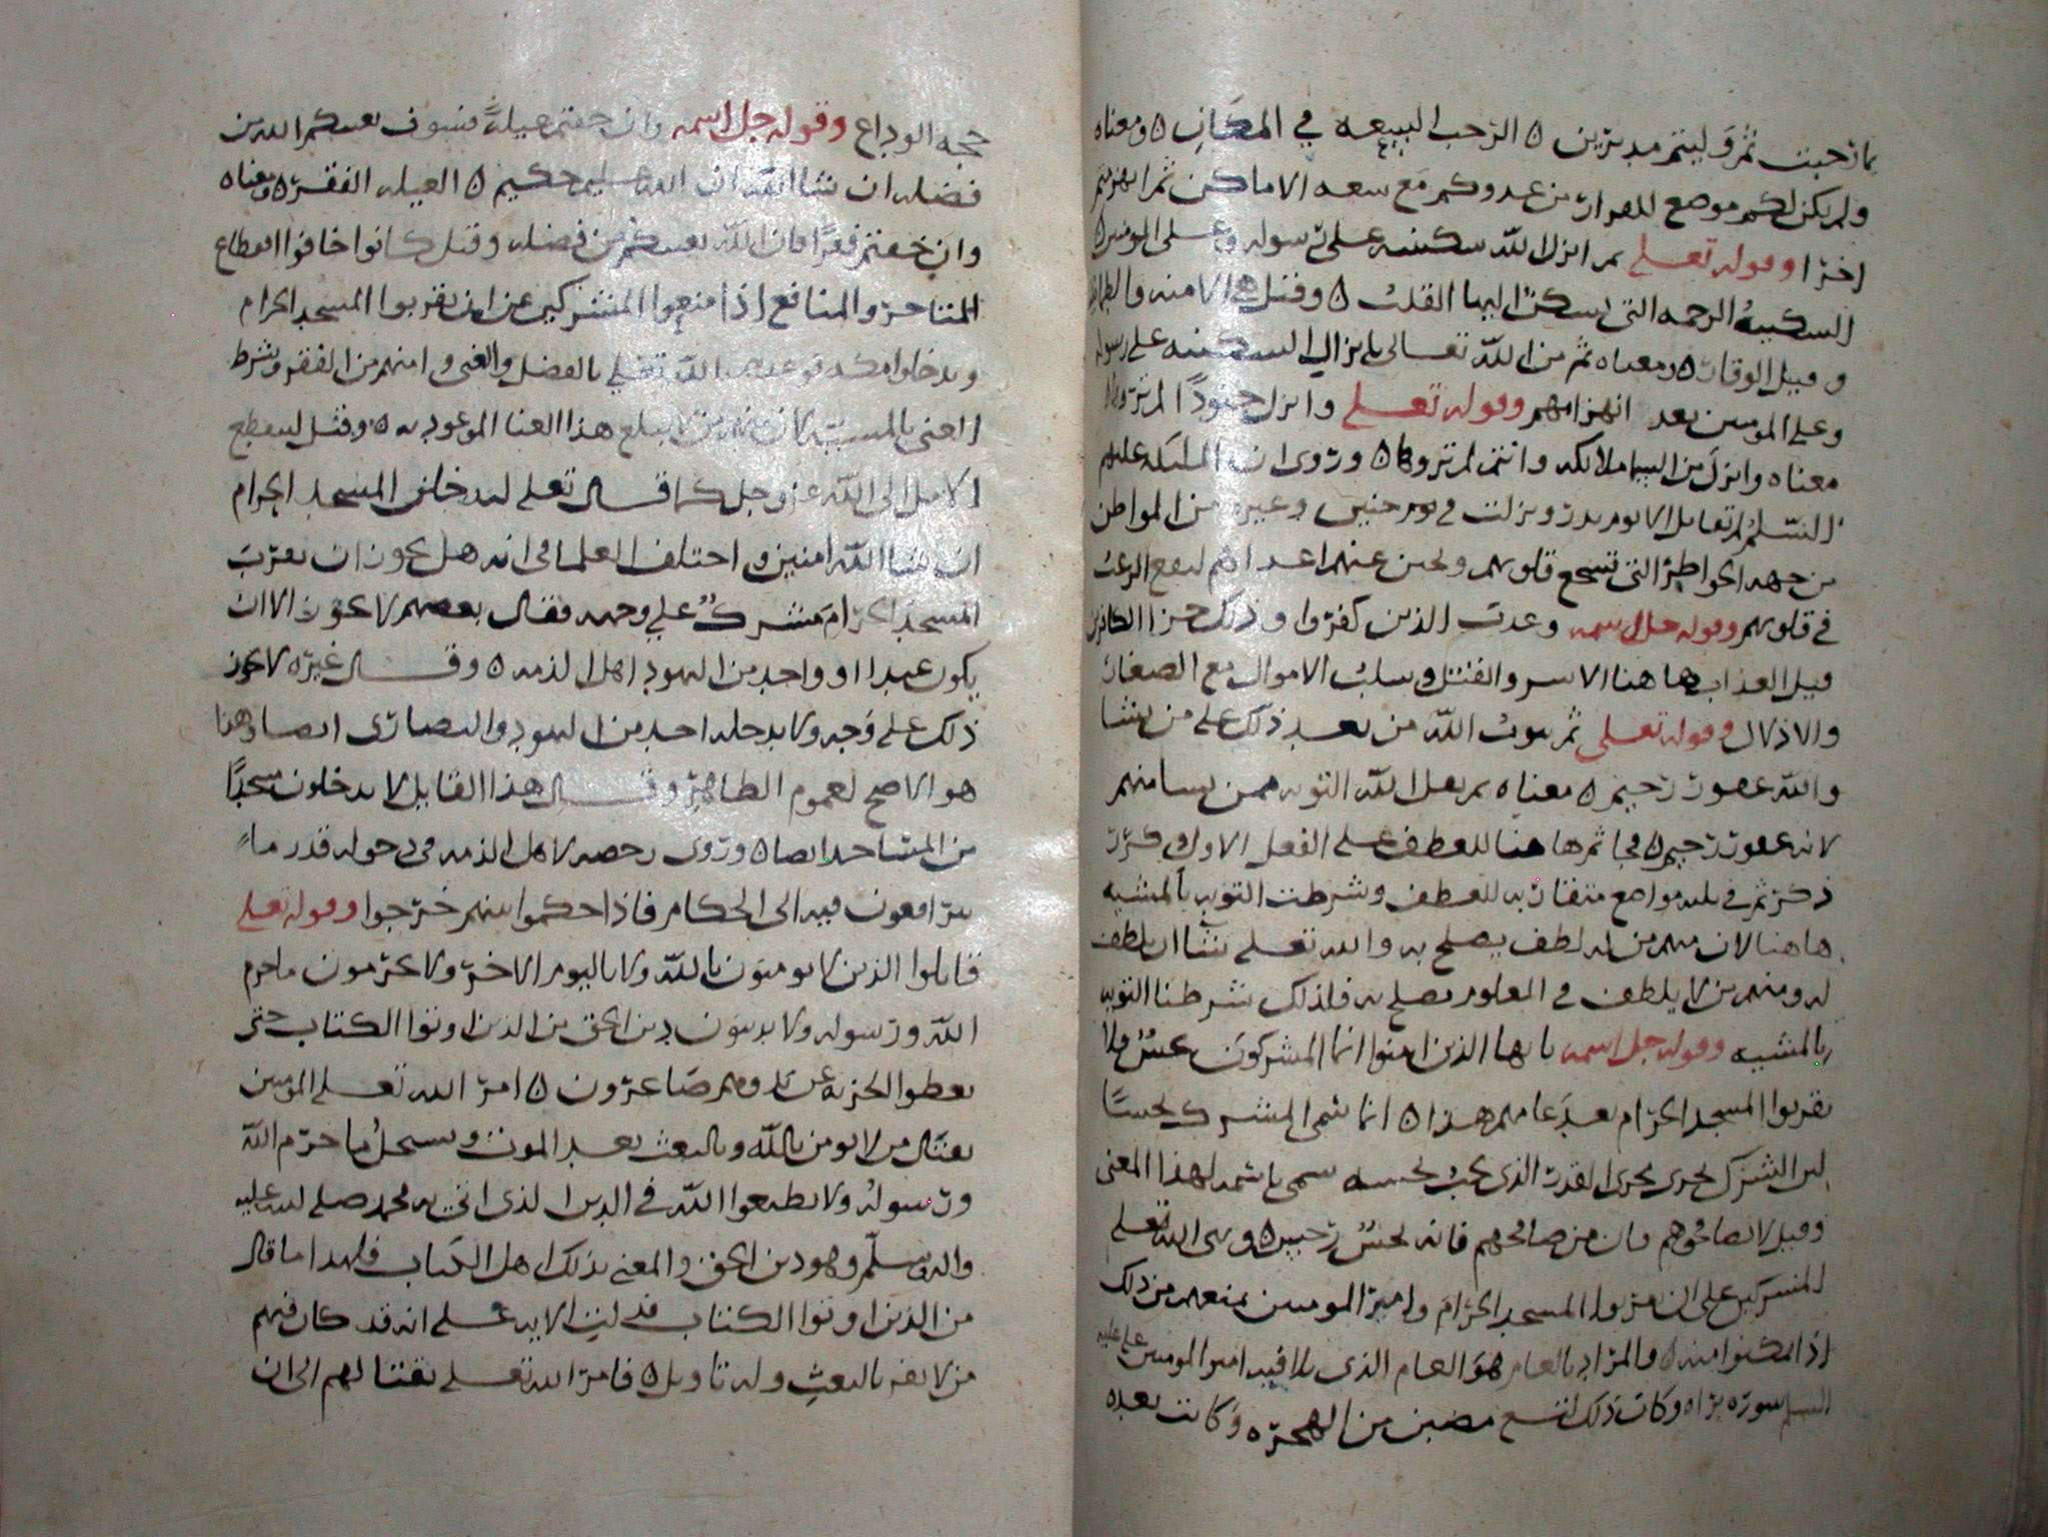 بما رحبت ثم وليتم مدبرين ه الرحب السعه في المكان ه ومعناه
ولم يكن لكم موضع للفرار من عدوكم مع سعه الاماكن ثم انهزمتم
اخرا وقوله تعلى ثم انزل الله سكينته على رسوله وعلى المومنين ه
السكينه الرحمه التي يسكن اليها القلب ه وقيل هي الامنه والطمانينه
وقيل الوقار ه ومعناه ثم من الله تعالى بانزال السكينه على رسوله
وعلى المومنين بعد انهزامهم وقوله تعلى وانزل جنودا لم تروها
معناه وانزل من السما ملائكه وانتم لم تروها ه وروى ان الملئكه عليهم
السلم لم تقاتل الا يوم بدر ونزلت في يوم حنين وغيره من المواطن
من جهه الخواطر التي تشجع قلوبهم وتجبن عنهم اعداهم ليقع الرعب
في قلوبهم وقوله جل اسمه وعذب الذين كفروا وذلك جزا الكافرين
قيل العذاب هاهنا الاسر والقتل وسلب الاموال مع الصغار
والاذلال وقوله تعلى ثم يتوب الله من بعد ذلك على من يشا
والله غفور رحيم ه معناه ثم يقبل الله التوبه ممن يشا منهم
لانه غفور رحيم ه وجا ثم هاهنا للعطف على الفعل الاول وكرر
ذكر ثم في ثلثه مواضع متقاربه للعطف وشرطت التوبه بالمشيه
هاهنا لان منهم من له لطف يصلح به والله تعلى يشا ان يلطف
له ومنهم من لا يلطف في المعلوم يصلح به فلذلك شرطنا التوبه
بالمشيه وقوله جل اسمه يا يها الذين امنوا انما المشركون نجس فلا
يقربوا المسجد الحرام بعد عامهم هذا ه انما سمى المشرك نجسا
لان الشرك يجرى مجرى القدر الذى يجب تجنبه سمى باسمه لهذا المعنى
وقيل لا تصافحوهم فان من صافحهم فانه نجس رجس ه ونهى الله تعلى
المشركين على ان يقربوا المسجد الحرام وامر المومنين بمنعهم من ذلك
اذا تمكنوا منه ه والمراد بالعام هو العام الذى تلا فيه امير المومنين على عليه
السلم سوره براه وكان ذلك لتسع مضين من الهجره وكانت بعده
حجه الوداع وقوله جل اسمه وان خفتم عيله فسوف يغنيكم الله من
فضله ان شا الله ان الله عليم حكيم ه العيله الفقر ه ومعناه
وان خفتم فقرا فان الله يغنيكم من فضله وقيل كانوا خافوا انقطاع
المتاجر والمنافع اذا منعوا المشركين عن ان يقربوا المسجد الحرام
ويدخلوا مكه فوعدهم الله تعلى بالفضل والغنى وامنهم من الفقر وشرط
الغنى بالمشيه لان منهم من لا يبلغ هذا الغنا الموعود به ه وقيل لينقطع
الامل الى الله عز وجل كما قال تعلى لتدخلن المسجد الحرام
ان شا الله امنين ه واختلف العلما في انه هل يجوز ان يقرب
المسجد الحرام مشرك على وجه فقال بعضهم لا يجوز الا ان
يكون عبدا او واحد من اليهود اهل الذمه ه وقال غيره لا يجوز
ذلك على وجه ولا يدخله احد من اليهود والنصارى ايضا وهذا
هو الاصح لعموم الظاهر وقال هذا القايل لا يدخلون مسجدا
من المساجد ايضا ه وروى رخصه لاهل الذمه في دخوله قدر ما
يترافعون فيه الى الحكام فاذا حكموا بينهم خرجوا وقوله تعلى
قاتلوا الذين لا يومنون بالله ولا باليوم الاخر ولا يحرمون ما حرم
الله ورسوله ولا يدينون دين الحق من الذين اوتوا الكتاب حتى
يعطوا الجزيه عن يد وهم صاغرون ه امر الله تعلى المومنين
بقتال من لا يومن بالله وبالبعث بعد الموت ويستحل ما حرم الله
ورسوله ولا يطيعوا الله في الدين الذى اتى به محمد صلى الله عليه
واله وسلم وهو دين الحق والمعنى بذلك اهل الكتاب فلهذا ما قال
من الذين اوتوا الكتاب فدلت الايه على انه قد كان فيهم
من لا يقر بالبعث وله تاويل ه فامر الله تعلى بقتالهم الى ان